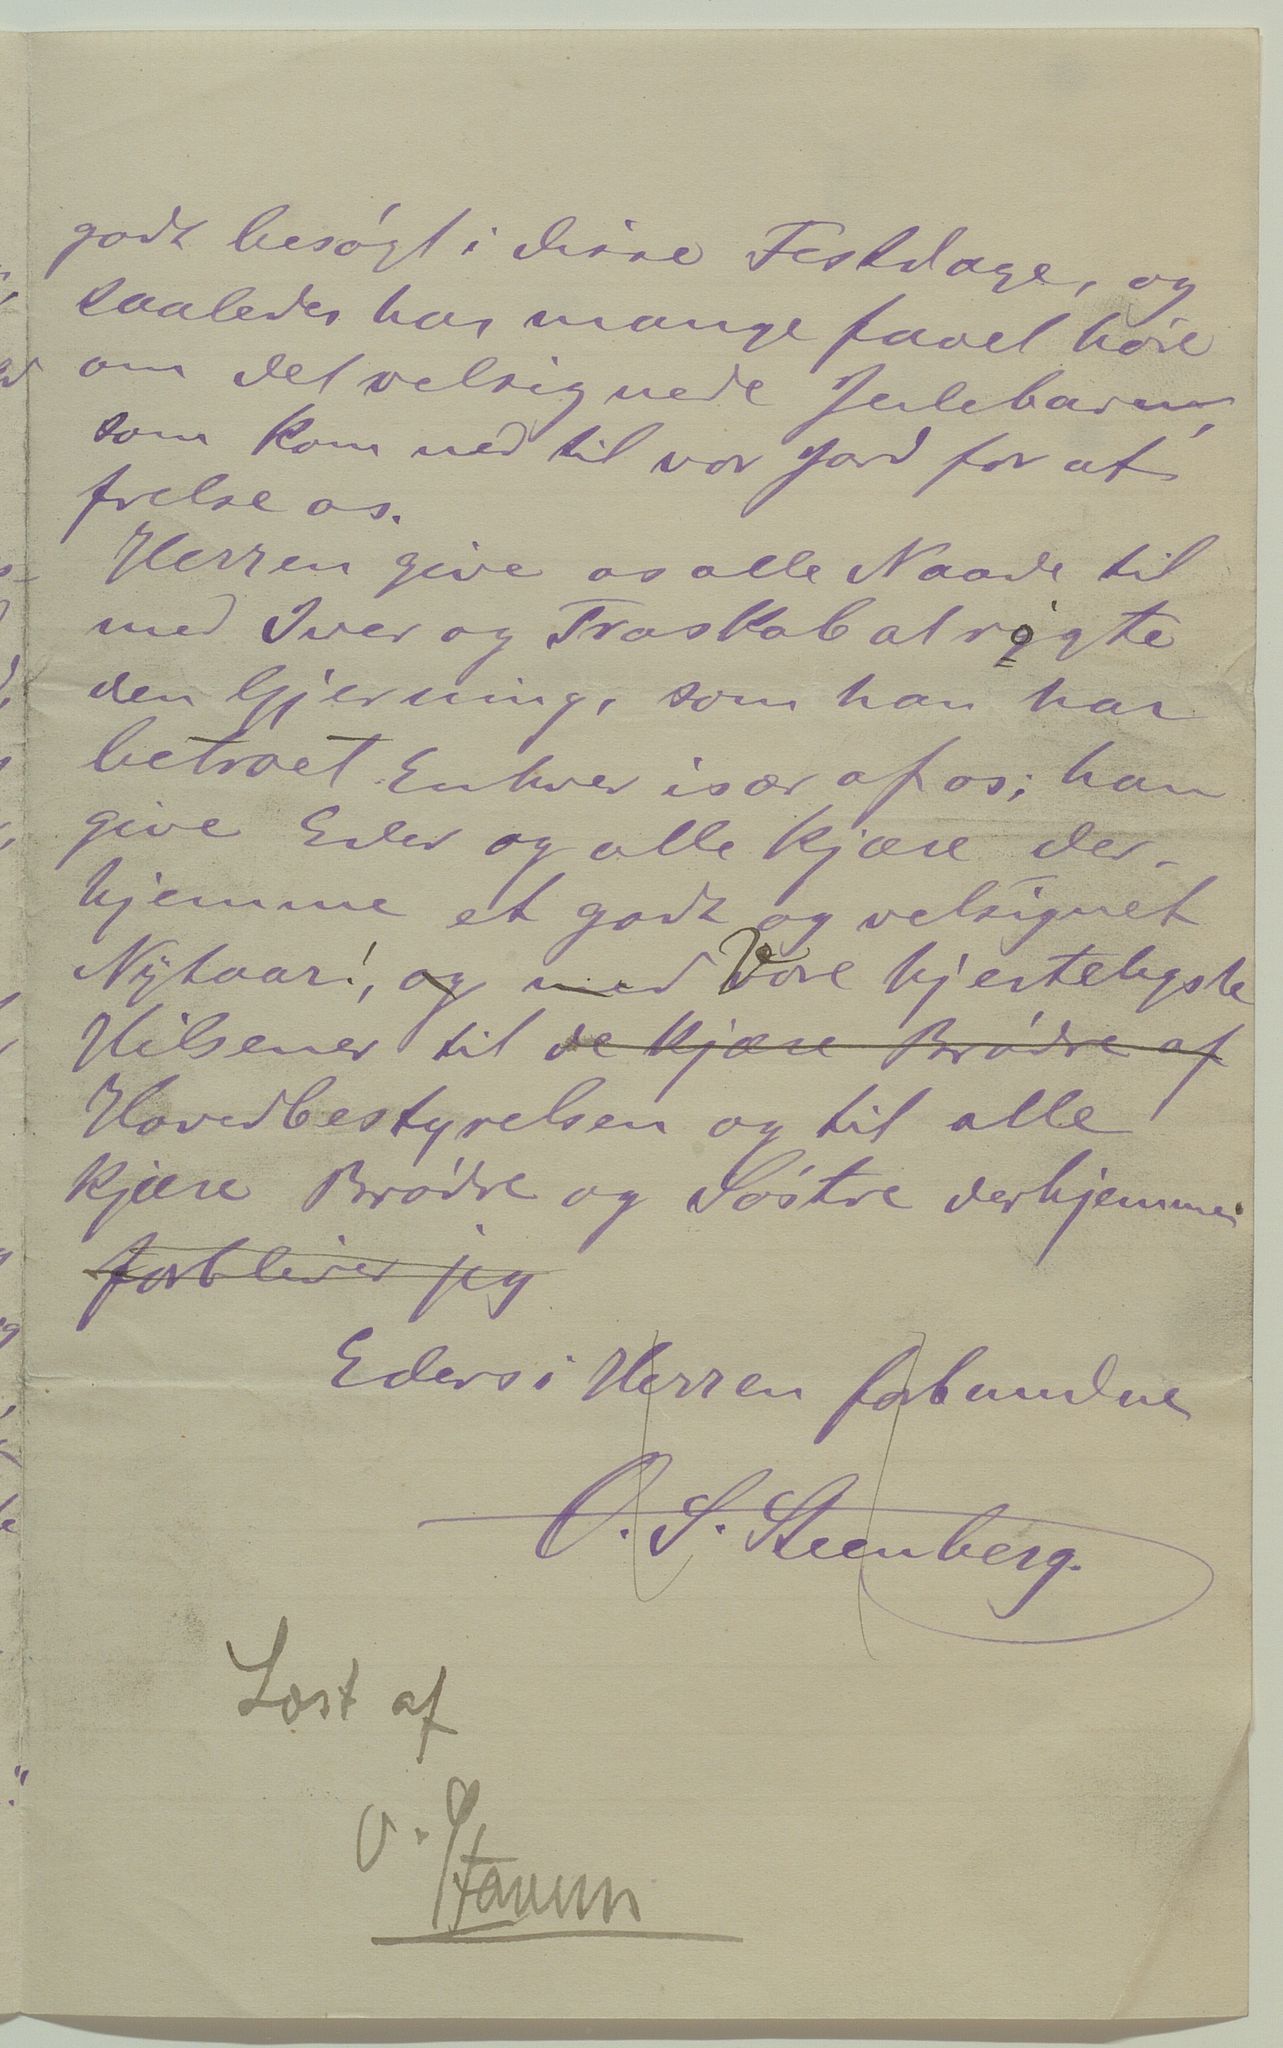 godt besøgt i disse Festdage, og
saaledes har mange faael høre
om det velsignede Julebarn,
som kom ned til vor Jord for at
frelse os.
Herren give os alle Naade til
med Iver og Troskab at røgte
den Gjerning, som han har
betroet Enhver især af os; han
give Eder og alle kjære der-
hjemme et godt og velsignet
Nytaar!, og med Vore hjerteligste
Hilsener til de kjære Brødre af
Hovedbestyrelsen og til alle
kjære Brødre og Søstre derhjemme
forbliver jeg
Eders i Herren forbundne
O. S. Steenberg.
Læst af
O.